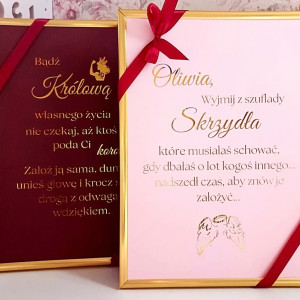 Bądź
Królową
własnego życia
nie czekaj, aż ktoś
poda Ci
koro
Załóż ją sama, dum
unieś głowę i krocz s
drogą z odwagą
wdziękiem.
Oliwia,
Wyjmij z szuflady
Skrzydła
które musiałaś schować,
gdy dbałaś o lot kogoś innego...
nadszedł czas, aby znów je
założyć...